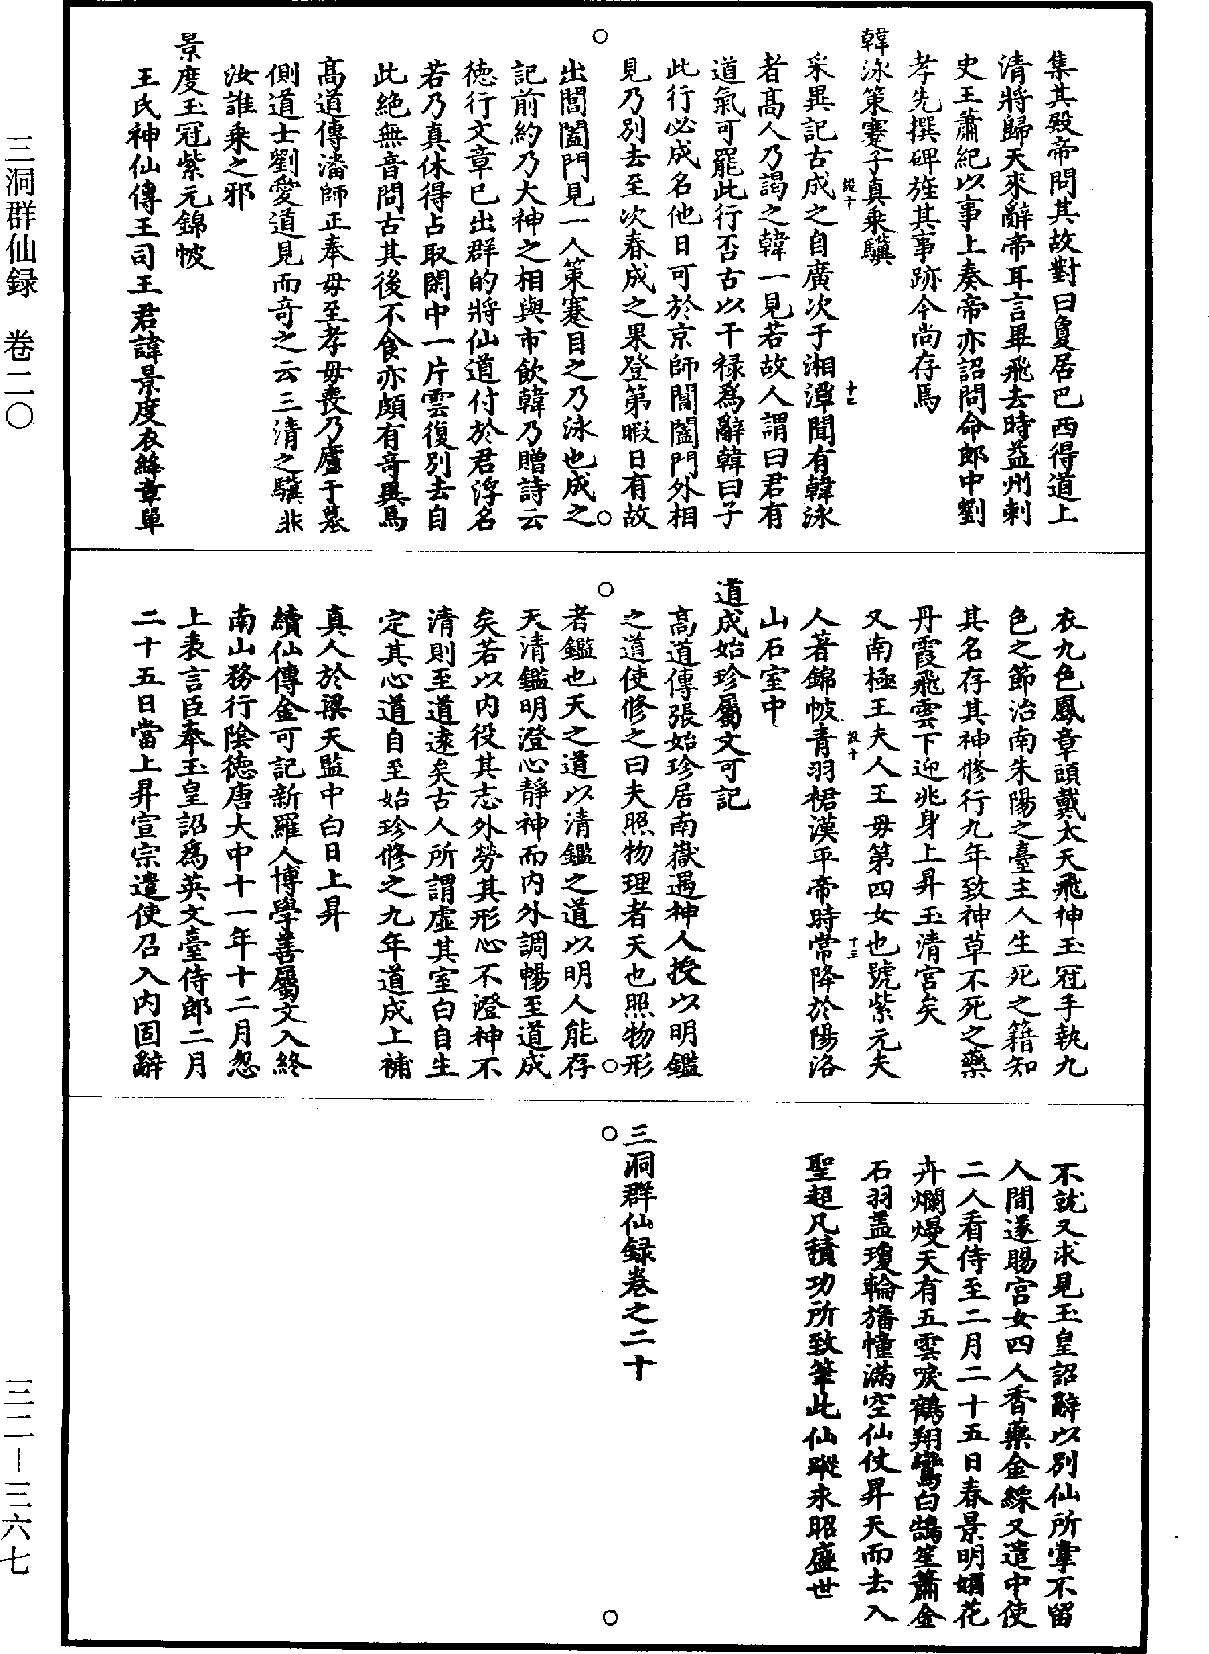 集其殿帝問其故對曰敻居巴西得道上
清將歸天來辭帝耳言畢飛去時益州刺
史王蕭紀以事上奏帝亦詔問命郎中劉
孝先撰碑旌其事跡今尚存焉
韓泳策蹇子真乘驥
采異記古成之自廣次于湘潭聞有韓泳
者髙人乃謁之韓一見若故人謂曰君有
道氣可罷此行否古以干禄爲辭韓曰子
此行必成名他日可於京師閶闔門外相
見乃别去至次春成之果登第暇日有故
出閶闔門見一人策蹇目之乃泳也成之
記前約乃大神之相與市飲韓乃贈詩云
徳行文章已出群的將仙道付於君浮名
若乃真休得占取閑中一片雲復别去自
此絶無音問古其後不食亦頗有奇異焉
髙道傳潘師正奉母至孝母喪乃廬于墓
側道士劉愛道見而奇之云三清之驥非
汝誰乘之邪
景度玉冠紫元錦帔
王氏神仙傳王司王君諱景度衣絳章單
衣九色鳳章頭戴太天飛神玉冠手執九
色之節治南朱陽之臺主人生死之籍知
其名存其神修行九年致神草不死之藥
丹霞飛雲下迎兆身上昇玉清宮矣
又南極王夫人王母第四女也號紫元夫
人著錦帔青羽裙漢平帝時常降於陽洛
山石室中
道成始珍屬文可記
髙道傳張始珍居南嶽遇神人授以明鑑
之道使修之曰夫照物理者天也照物形
者鑑也天之道以清鑑之道以明人能存
天清鑑明澄心靜神而内外調暢至道成
矣若以内役其志外勞其形心不澄神不
清則至道遠矣古人所謂虛其室白自生
定其心道自至始珍修之九年道成上補
真人於梁天監中白日上昇
續仙傳金可記新羅人博學善屬文入終
南山務行陰徳唐大中十一年十二月忽
上表言臣奉玉皇詔爲英文臺侍郎二月
二十五日當上昇宣宗遣使召入内固辭
不就又求見玉皇詔辭以别仙所掌不留
人間遂賜宮女四人香藥金綵又遣中使
二人看侍至二月二十五日春景明媚花
卉爛熳天有五雲唳鶴翔鸞白鵠笙簫金
石羽盖瓊輪旛幢滿空仙仗昇天而去入
聖超凡積功所致筆此仙蹤永昭盛世
三洞群仙録卷之二十
三洞群仙録　卷二〇
三二—三六七